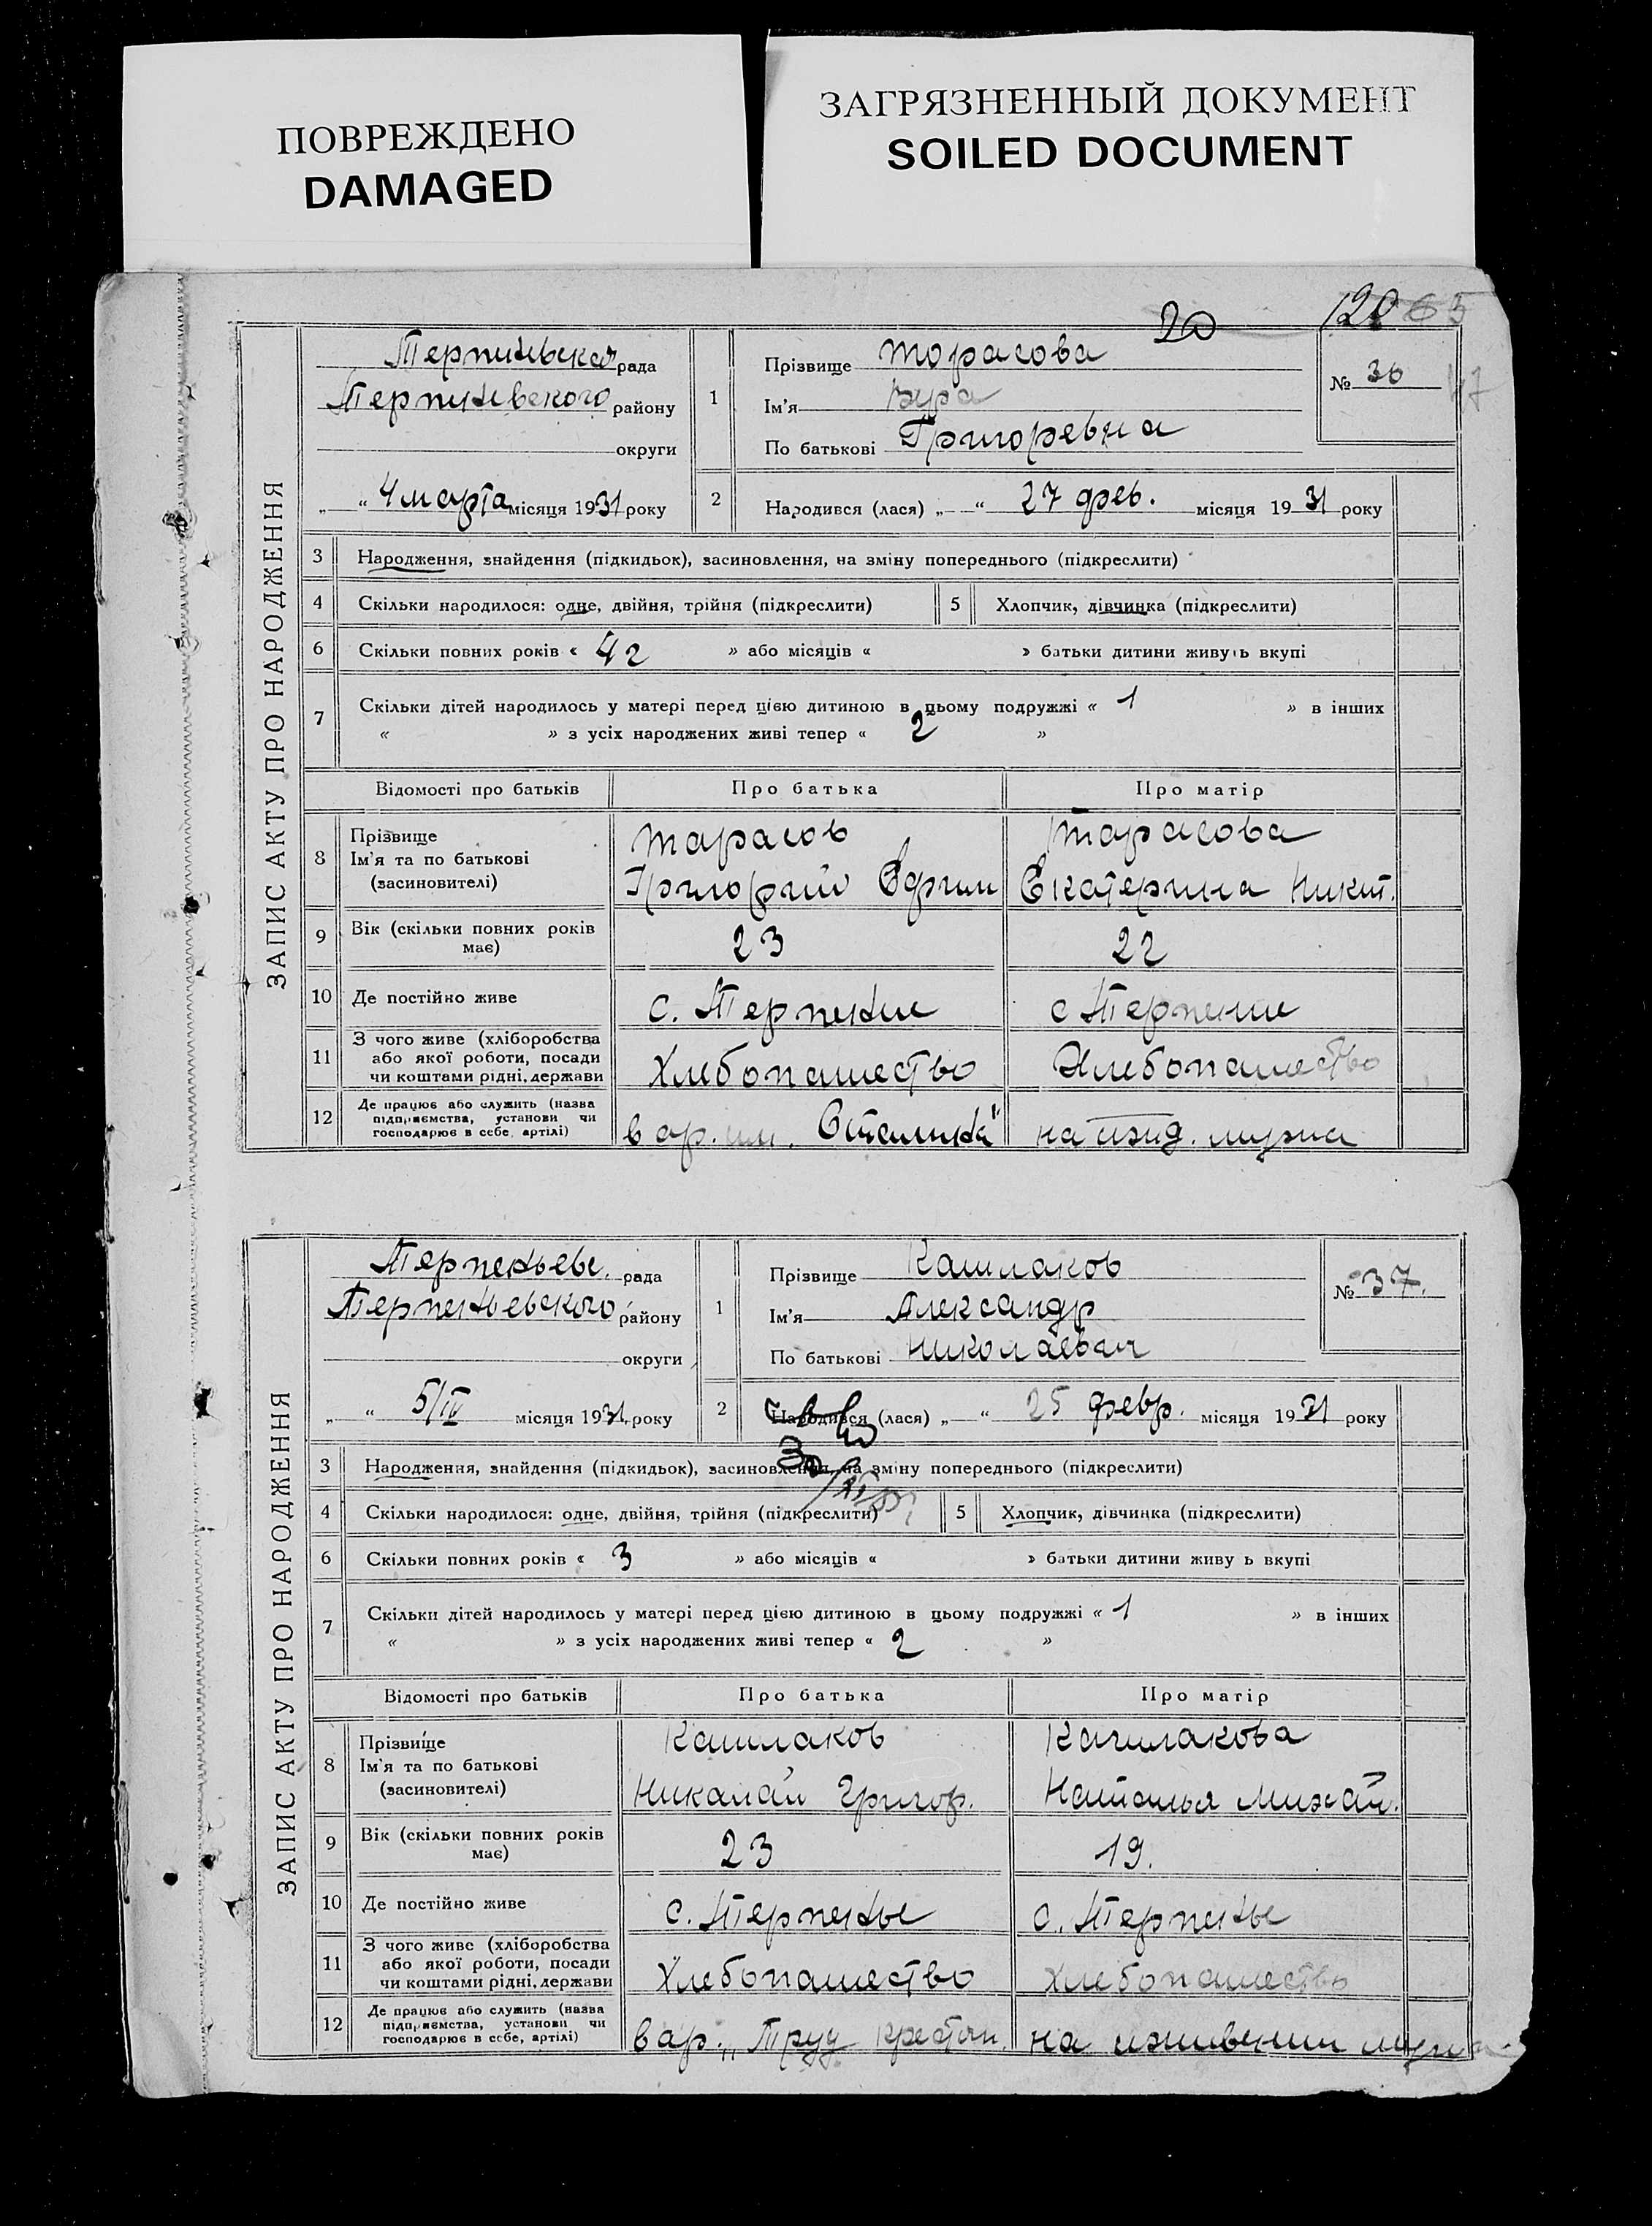 ПОВРЕЖДЕНО
DAMAGED
ЗАГРЯЗНЕННЫЙ ДОКУМЕНТ
SOILED DOCUMENT
20
120 65
ЗАПИС АКТУ ПРО НАРОДЖЕННЯ
рада
Терпиньевского району
округи
„ “ 4 марта місяця 1931 року
1
Прізвище Торасова
Ім'я
По батькові Григоревна
№ 36
47
2 Народився (лася) „ “ 27 фев. місяця 1931 року
3 Народження, знайдення (підкидьок), засиновлення, на зміну попереднього (підкреслити)
4 Скільки народилося: одне, двійня, трійня (підкреслити)
5 Хлопчик, дівчинка (підкреслити)
6 Скільки повних років « 4 г » або місяців « » батьки дитини живуть вкупі
7 Скільки дітей народилось у матері перед цією дитиною в цьому подружжі « 1 » в інших
« » з усіх народжених живі тепер « 2 »
Відомості про батьків Про батька Про матір
8 Прізвище
Ім'я та по батькові
(засиновителі)
Тарасов
Григорий Ефрим
Тарасова
Екатерина Никит.
9 Вік (скільки повних років має) 23 22
10 Де постійно живе с. Терпение с Терпение
11 З чого живе (хліборобства
або якої роботи, посади
чи коштами рідні, держави
Хлебопашество Хлебопашество
12 Де працює або служить (назва
підприємства, установи чи
господарює в себе, артілі)
в ар. им. на ижд. мужа
ЗАПИС АКТУ ПРО НАРОДЖЕННЯ
Терпеньевс. рада
Терпеньевского району
округи
„ “ 5/IV місяця 1931 року
1
Прізвище Кашлаков
Ім'я Александр
По батькові Николаевич
№ 37.
2 Народився (лася) „ “ 25 февр. місяця 1931 року
3 Народження, знайдення (підкидьок), засиновлення, на зміну попереднього (підкреслити)
4 Скільки народилося: одне, двійня, трійня (підкреслити)
5 Хлопчик, дівчинка (підкреслити)
6 Скільки повних років « 3 » або місяців « » батьки дитини живу ь вкупі
7 Скільки дітей народилось у матері перед цією дитиною в цьому подружжі « 1 » в інших
« » з усіх народжених живі тепер « 2 »
Відомості про батьків Про батька Про матір
8 Прізвище
Ім'я та по батькові
(засиновителі)
Кашлаков
Никалай Григор.
Кашлакова
Наталья Михай.
9 Вік (скільки повних років має) 23 19.
10 Де постійно живе с. Терпенье с. Терпенье
11 З чого живе (хліборобства
або якої роботи, посади
чи коштами рідні, держави
Хлебопашество хлебопашество
12 Де працює або служить (назва
підприємства, установи чи
господарює в себе, артілі)
в ар. „Труд крестян. на иживении мужа